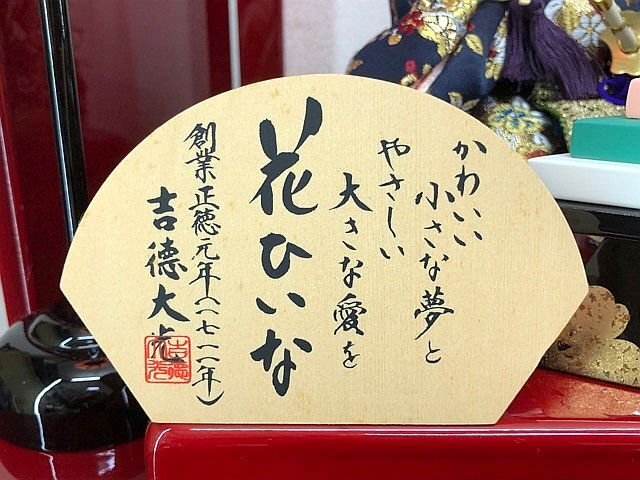 かわいい
小さな夢と
やさしい
大きな愛を
花ひいな
創業正徳元年(一七一一年)
吉德大光
吉德
大光